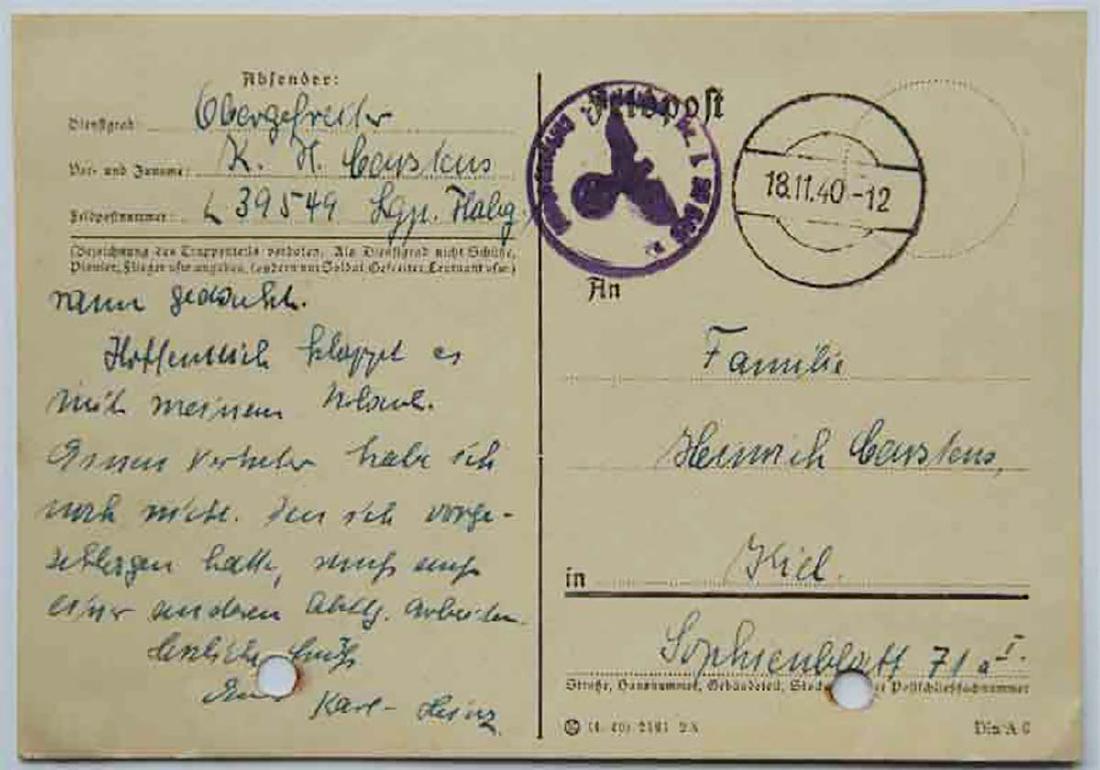 Absender:
Dienstgrad: Obergefreiter
Vor- und Zuname: K. H. Carstens
Feldpostnummer: L 39549 Lgp. Hbg.
(Bezeichnung des Truppenteils verboten. Als Dienstgrad nicht Schütze,
Pionier, Flieger usw. angeben, sondern nur Soldat, Gefreiter, Leutnant usw.)
gedacht.
Hoffentlich klappt es
mit meinem Urlaub.
Einen Vertreter habe ich
noch nicht. Den ich vorge-
schlagen hatte, muß auf
einer anderen Abtlg. arbeiten.
Herzliche Grüße
Euer Karl-Heinz
Feldpost
18.11.40-12
An
Familie
Heinrich Carstens,
in Kiel.
Sophienblatt 71a I.
Straße, Hausnummer, Gebäudeteil, Postschließfachnummer
Din A 6